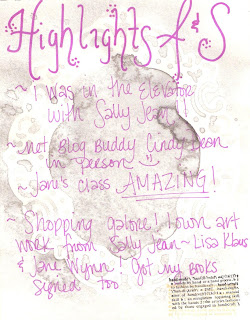 Highlights A & S
~ I was in the Elevator
with Sally Jean!
~ met Blog Buddy Cindy Dean
in person
~ Jane's class AMAZING!
~ Shopping galore! I own art
work from Sally Jean ~ Lisa Kaus
& Jane Wynn! Got my books
signed too